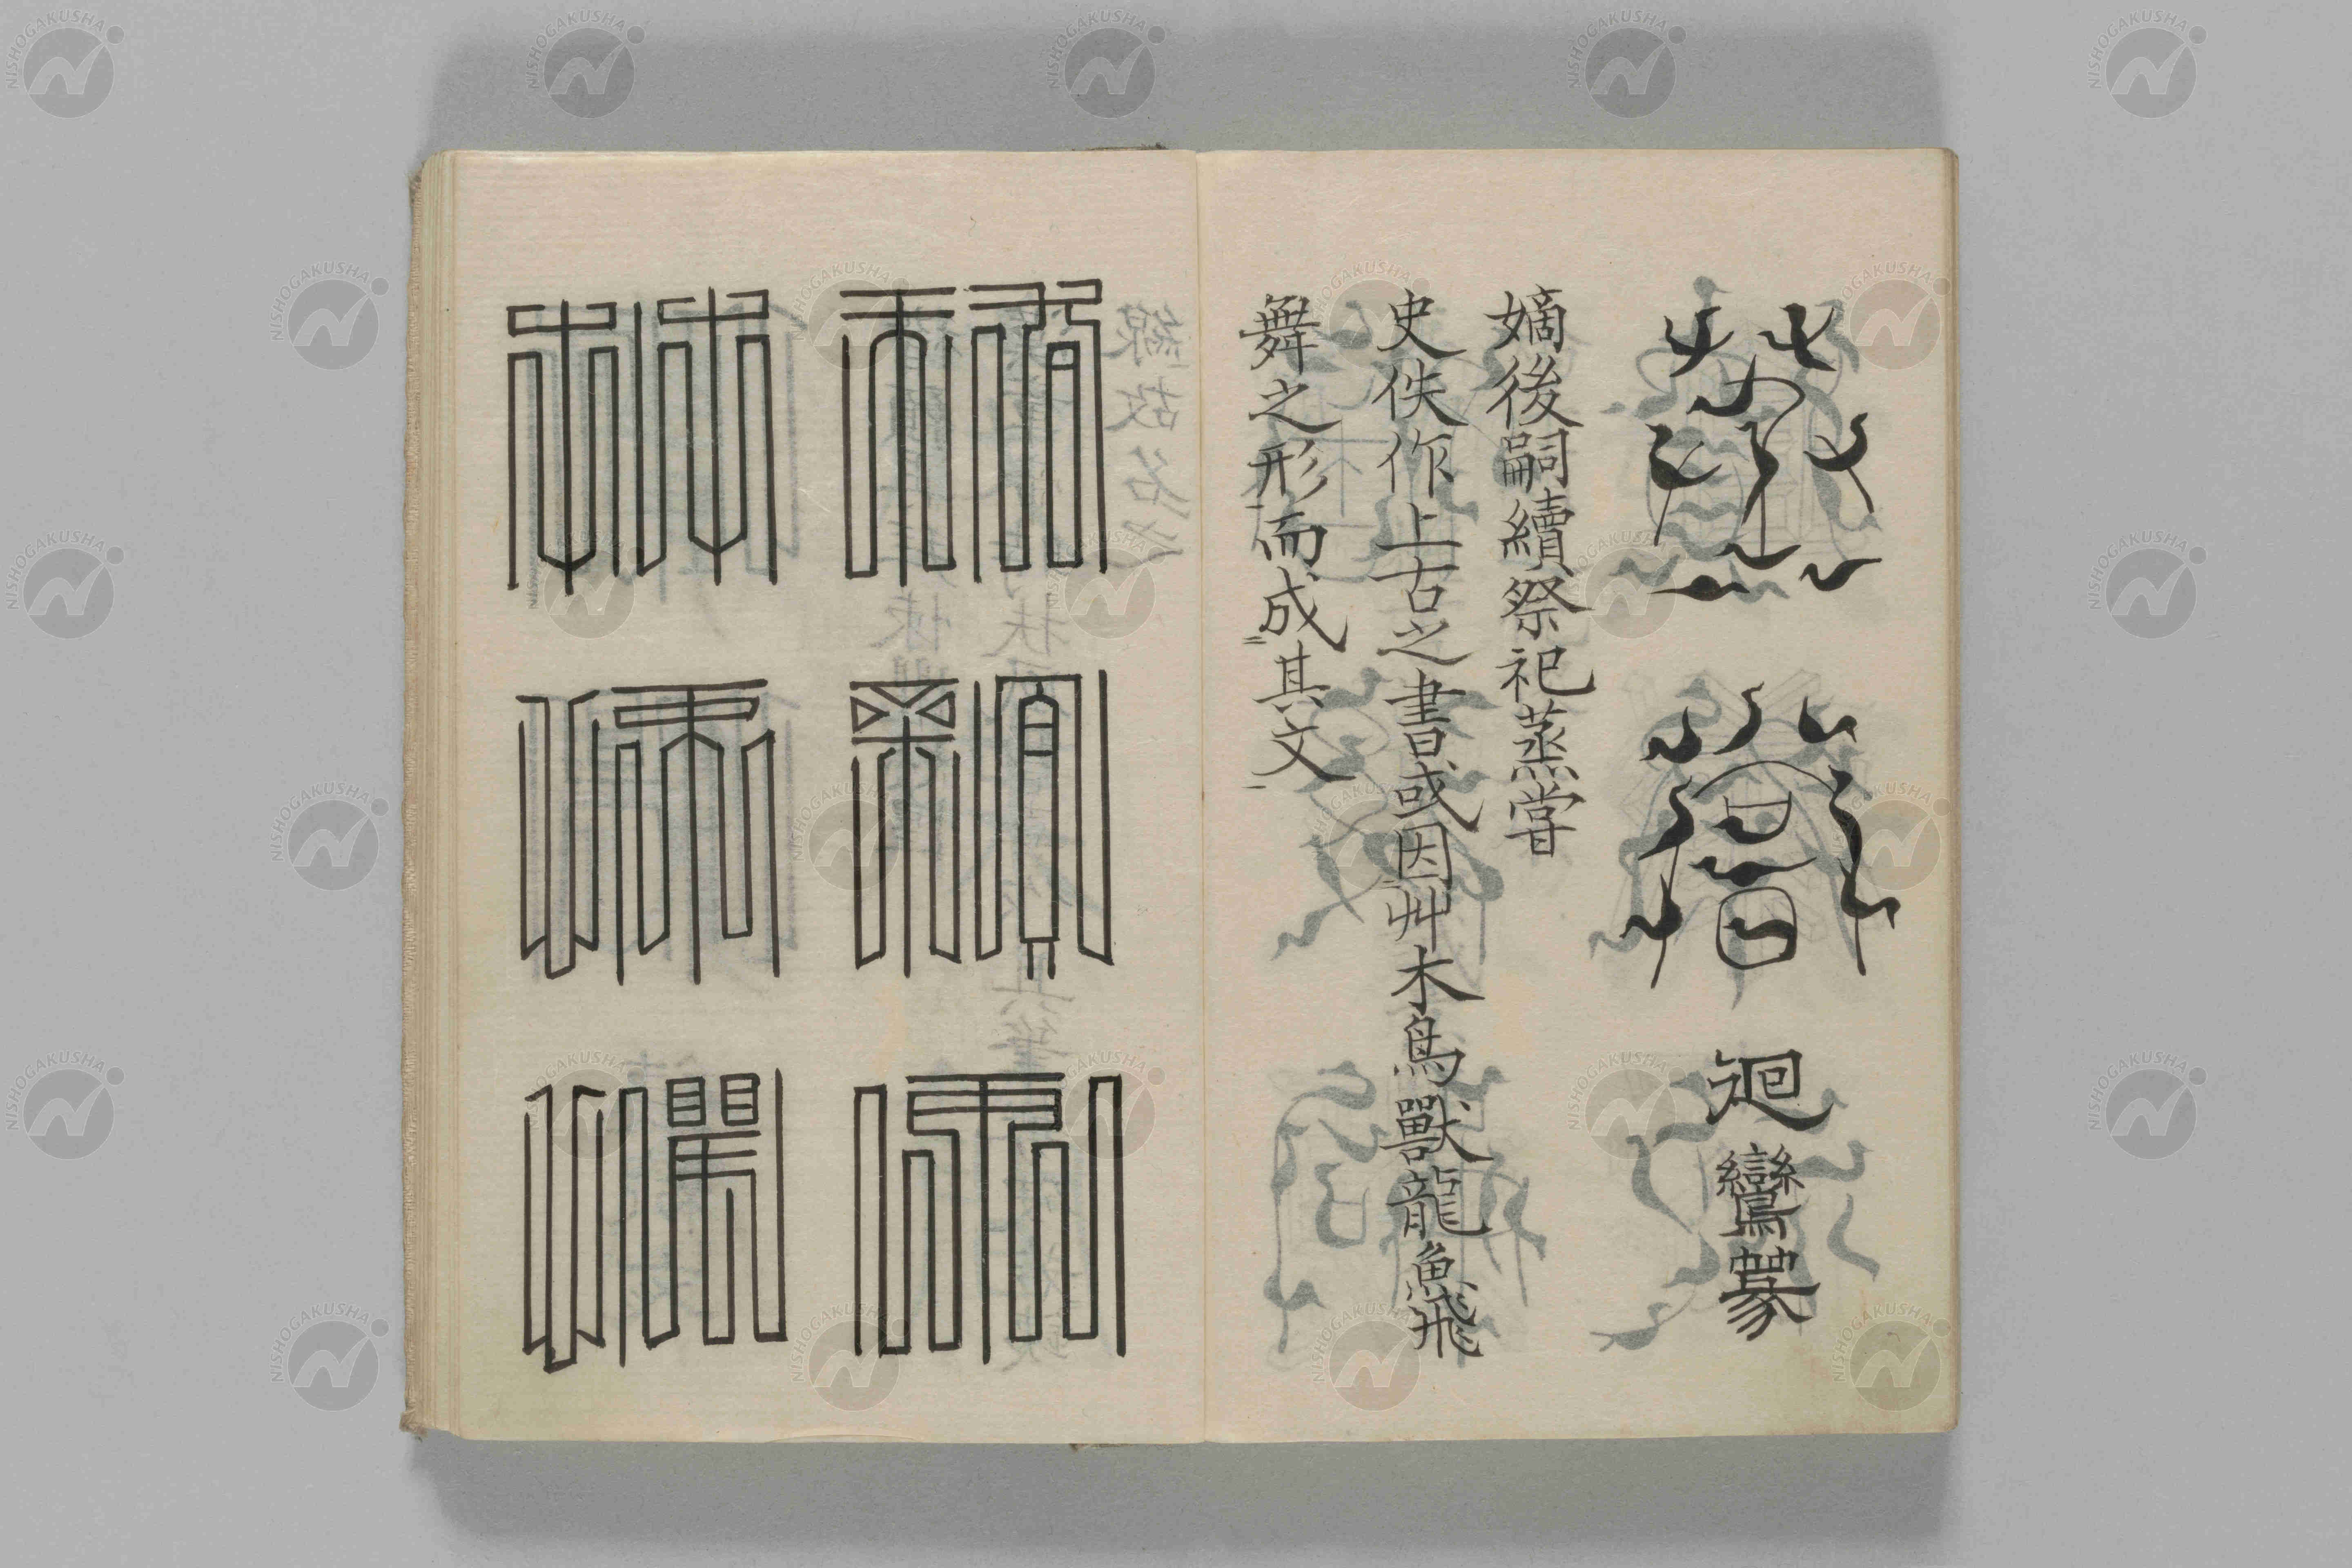 蒸嘗廻鸞篆
嫡後嗣續祭祀蒸嘗
史佚作上古之書或因艸木鳥獸龍魚飛
舞之形而成其文
稽顙再
拜悚懼
NISHOGAKUSHA